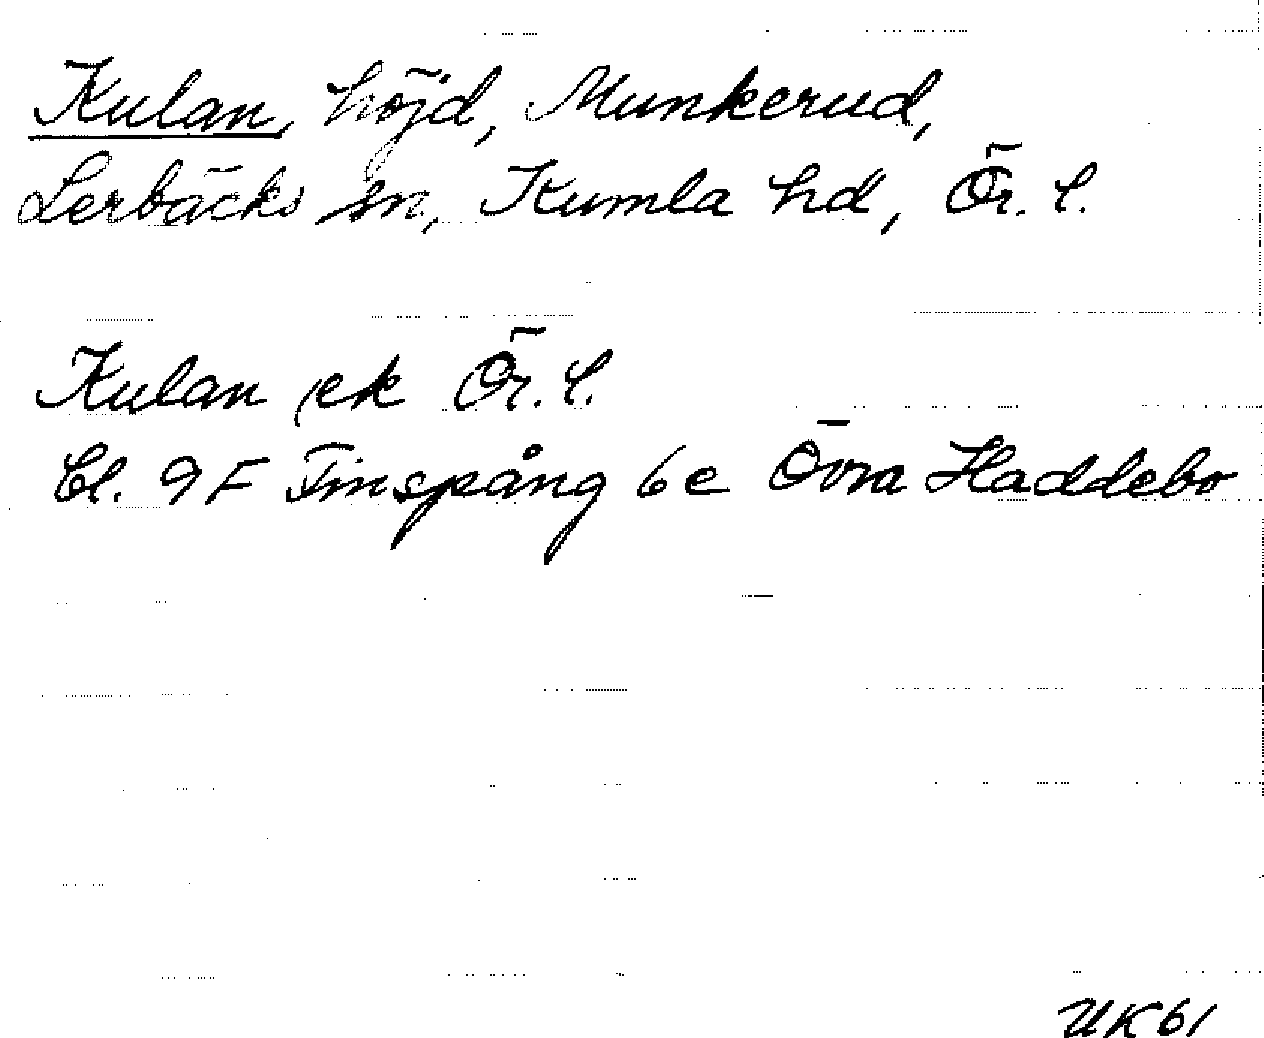 Kulan, höjd, Munkerud,
Lerbäcks sn, Kumla hd, Ör. l.
Kulan ek Ör. l.
Bl. 9F Finspång 6e Övra Haddebo
UK61